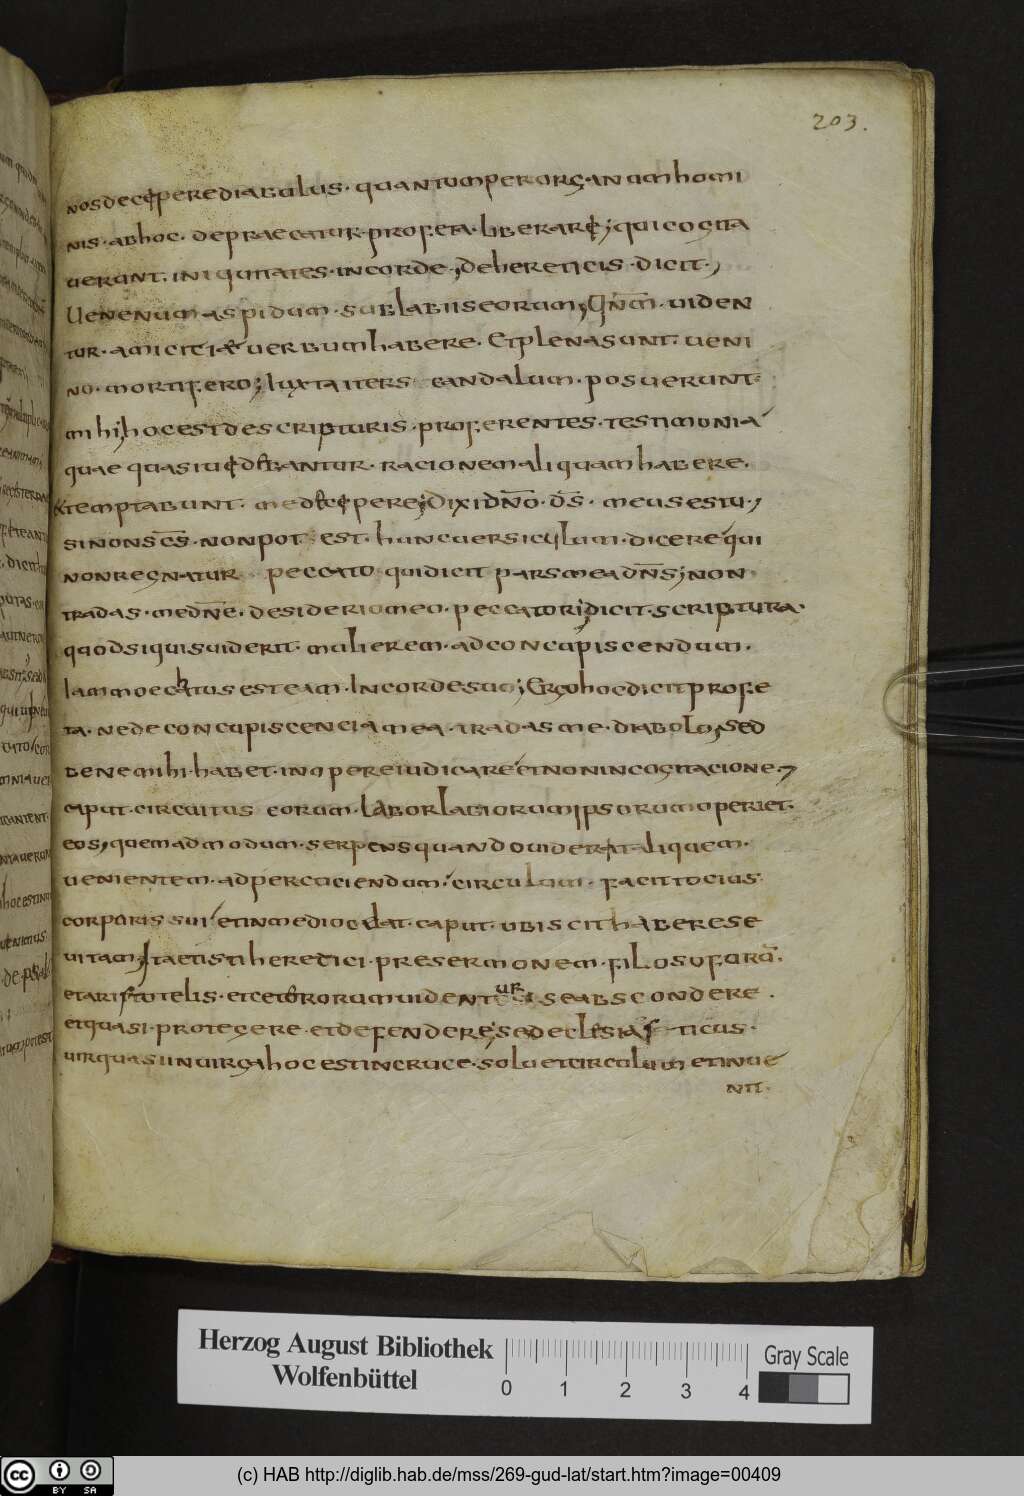 203.
nosdecęperediabulus. quantumperorganumhomi
nis. abhoc. depraecatur.profeta. liberarę; quicogita
uerunt. iniquitates. incorde; dehereticis. dicit.,
Uenenum aspidum. sublabiiseorum; Qnm. uiden
tur. amicitiæ uerbumhabere. Etplenasunt. ueni
no. mortifero; Iuxtaiters candalum. posuerunt.
mihi; hocestdescripturis. proferentes. testimonia
quae quasi racionemaliquamhabere.
temptabunt. me Dixidño. dś. meusestu.,
sinonsęs. nonpot est. huncuersiculum. dicere qui
nonregnatur peccato quidicit parsmeadñs; non
tradas. medñe. desideriomeo. peccatori; dicit. scriptura.
quodsiquisuiderit. mulierem. adconcupiscendum.
Iammoechatusesteam. Incordesuo; Ergohocdicitprofe
ta. nedeconcupiscenciamea. tradasme. diabolo; sed
benemihi. habet. inopereiudicare etnonincogitacione.,
caput. circuitus eorum. Laborlabiorumipsorumoperiet.
eos, quemadmodum. serpensquandouiderit aliquem.
uenientem. adpercuciendum. circulum. facittocius
corporis sui etinmediocdat. caput. ubiscithaberese
uitam; Itaetistiheretici. presermonem. filosoforu.
etaristotelis. etceterorumuidentur seabscondere.
etquasi. protegere. etdefendere; sedeclesiasticus.
uirquasiinuirgahocestincruce. solu etcirculum etinue
nit.
Herzog August Bibliothek
Wolfenbüttel
0 1 2 3 4
Gray Scale
cc BY SA
(c) HAB http://diglib.hab.de/mss/269-gud-lat/start.htm?image=00409